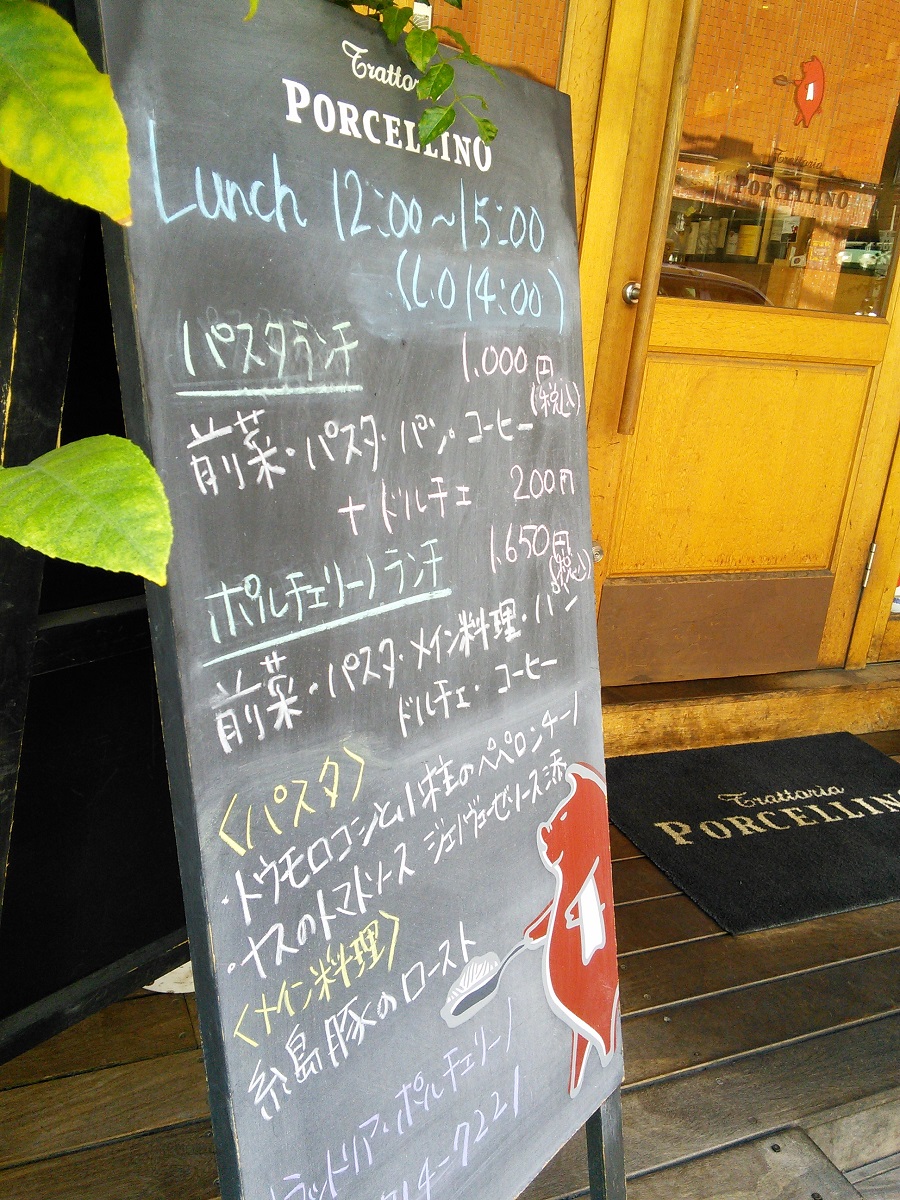 Trattor
PORCELLINO
Lunch 12:00~15:00
(L.O 14:00)
パスタランチ 1,000円
(税込)
前菜・パスタ・パン・コーヒー
+ドルチェ 200円
ポルチェリーノランチ 1,650円
(税込)
前菜・パスタ・メイン料理・パン
ドルチェ・コーヒー
<パスタ>
・トウモロコシと小柱のペペロンチーノ
・ナスのトマトソース ジェノヴェーゼソース添
<メイン料理>
糸島豚のロースト
ラットリア・ポルチェリーノ
714-7221
Trattoria
PORCELLINO
Trattoria
PORCELLINO